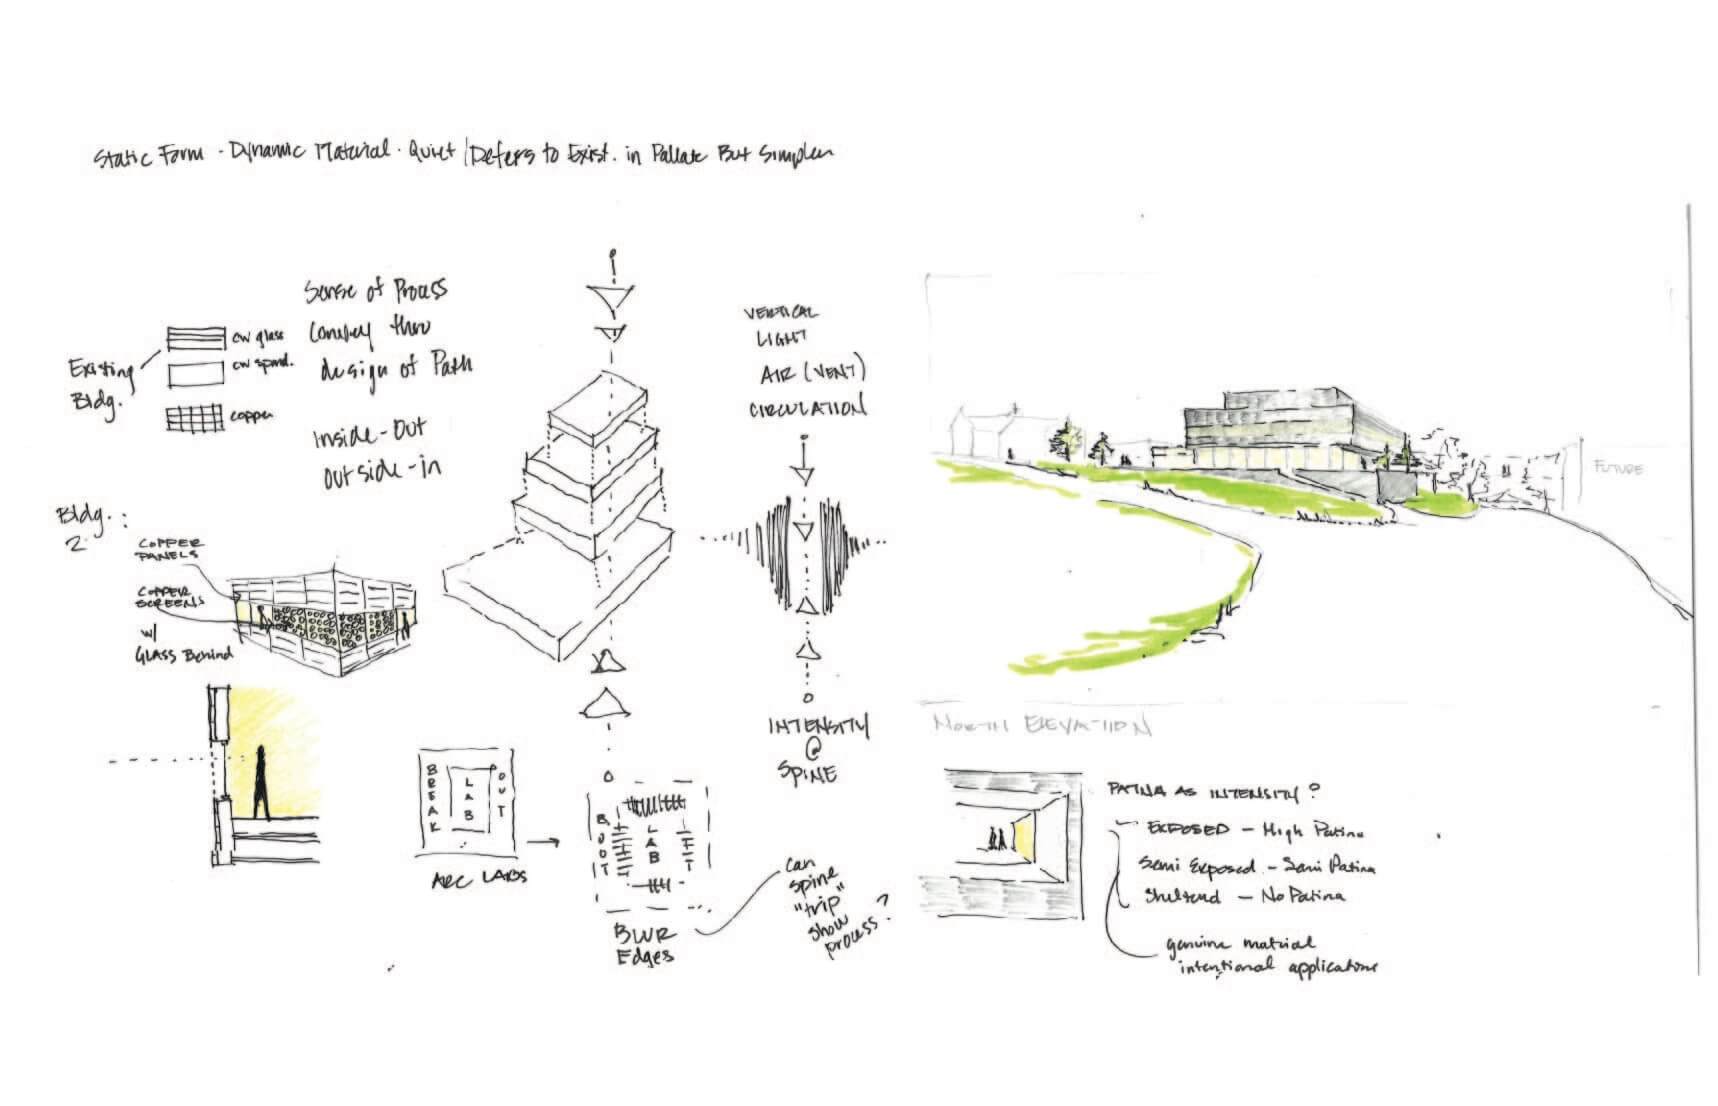 Static Form - Dynamic Material - Quiet / Defers to Exist. in Pallate But Simpler
Sense of Process
Convey thru
design of Path
Inside-Out
Outside-in
Existing
Bldg.
cw glass
cw spand.
copper
Bldg. :
2
COPPER
PANELS
COPPER
SCREENS
w/
GLASS Behind
BREAK
LAB
OUT
ARC LABS
B
OUT
LAB
BLUR
Edges
can
spine
"trip"
show
process?
VERTICAL
LIGHT
AIR (VENT)
CIRCULATION
INTENSITY
@
SPINE
FUTURE
NORTH ELEVATION
PATINA AS INTENSITY?
EXPOSED - High Patina
Semi Exposed - Semi Patina
Sheltered - No Patina
genuine material
intentional applications